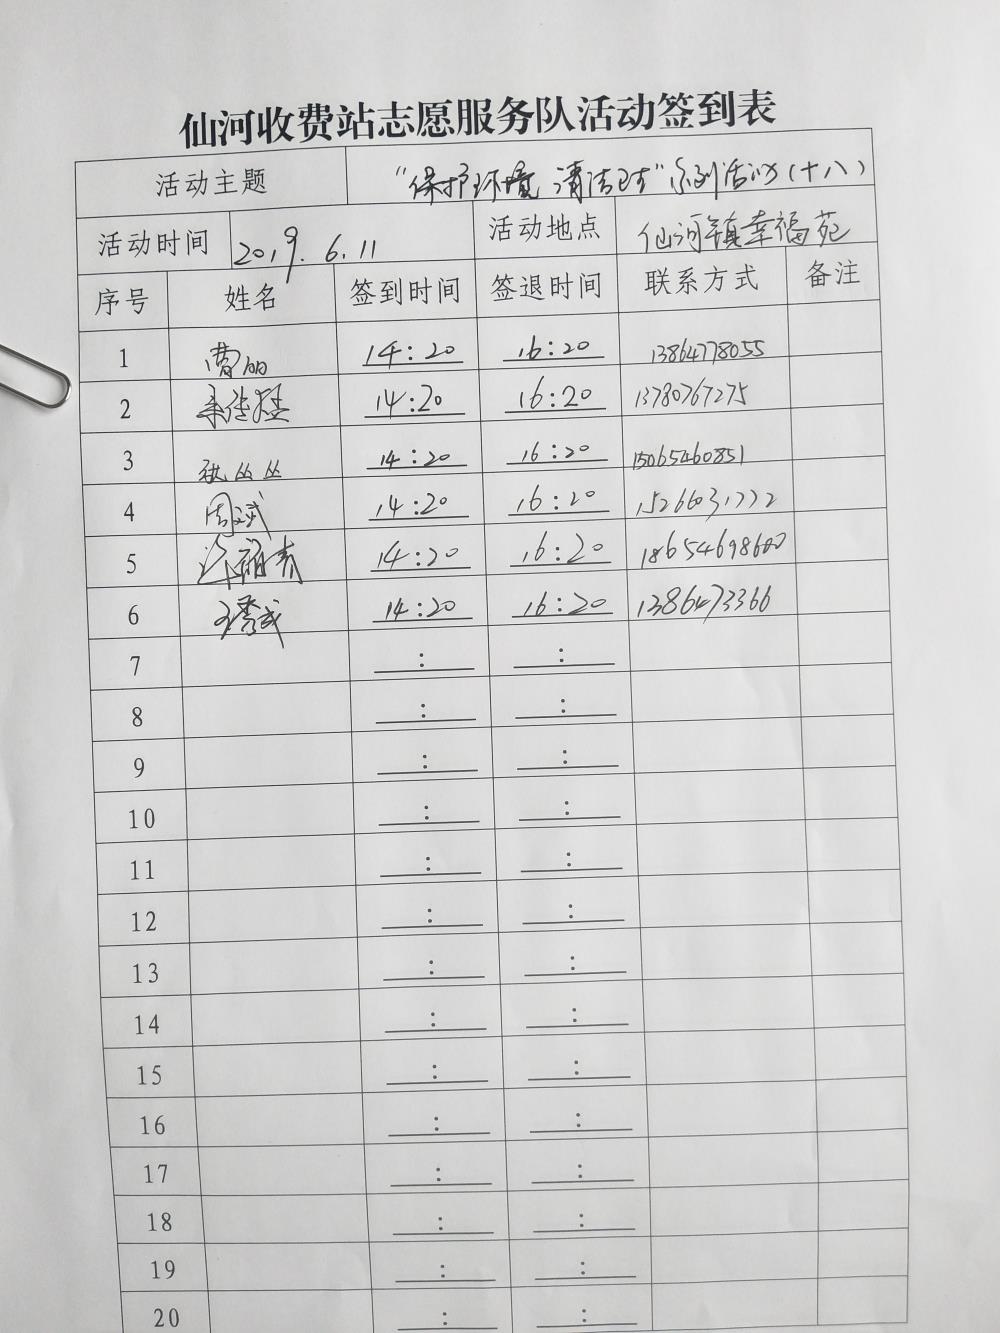 仙河收费站志愿服务队活动签到表
活动主题 “保护环境 清洁卫生”系列活动(十八)
活动时间 2019.6.11 活动地点 仙河镇幸福苑
序号 姓名 签到时间 签退时间 联系方式 备注
1 曹丽 14:20 16:20 13864778055
2 14:20 16:20 13780767275
3 张丛丛 14:20 16:20 15065460851
4 周斌 14:20 16:20 15266031772
5 14:20 16:20 18654698600
6 14:20 16:20 1386473366
7 : :
8 : :
9 : :
10 : :
11 : :
12 : :
13 : :
14 : :
15 : :
16 : :
17 : :
18 : :
19 : :
20 : :